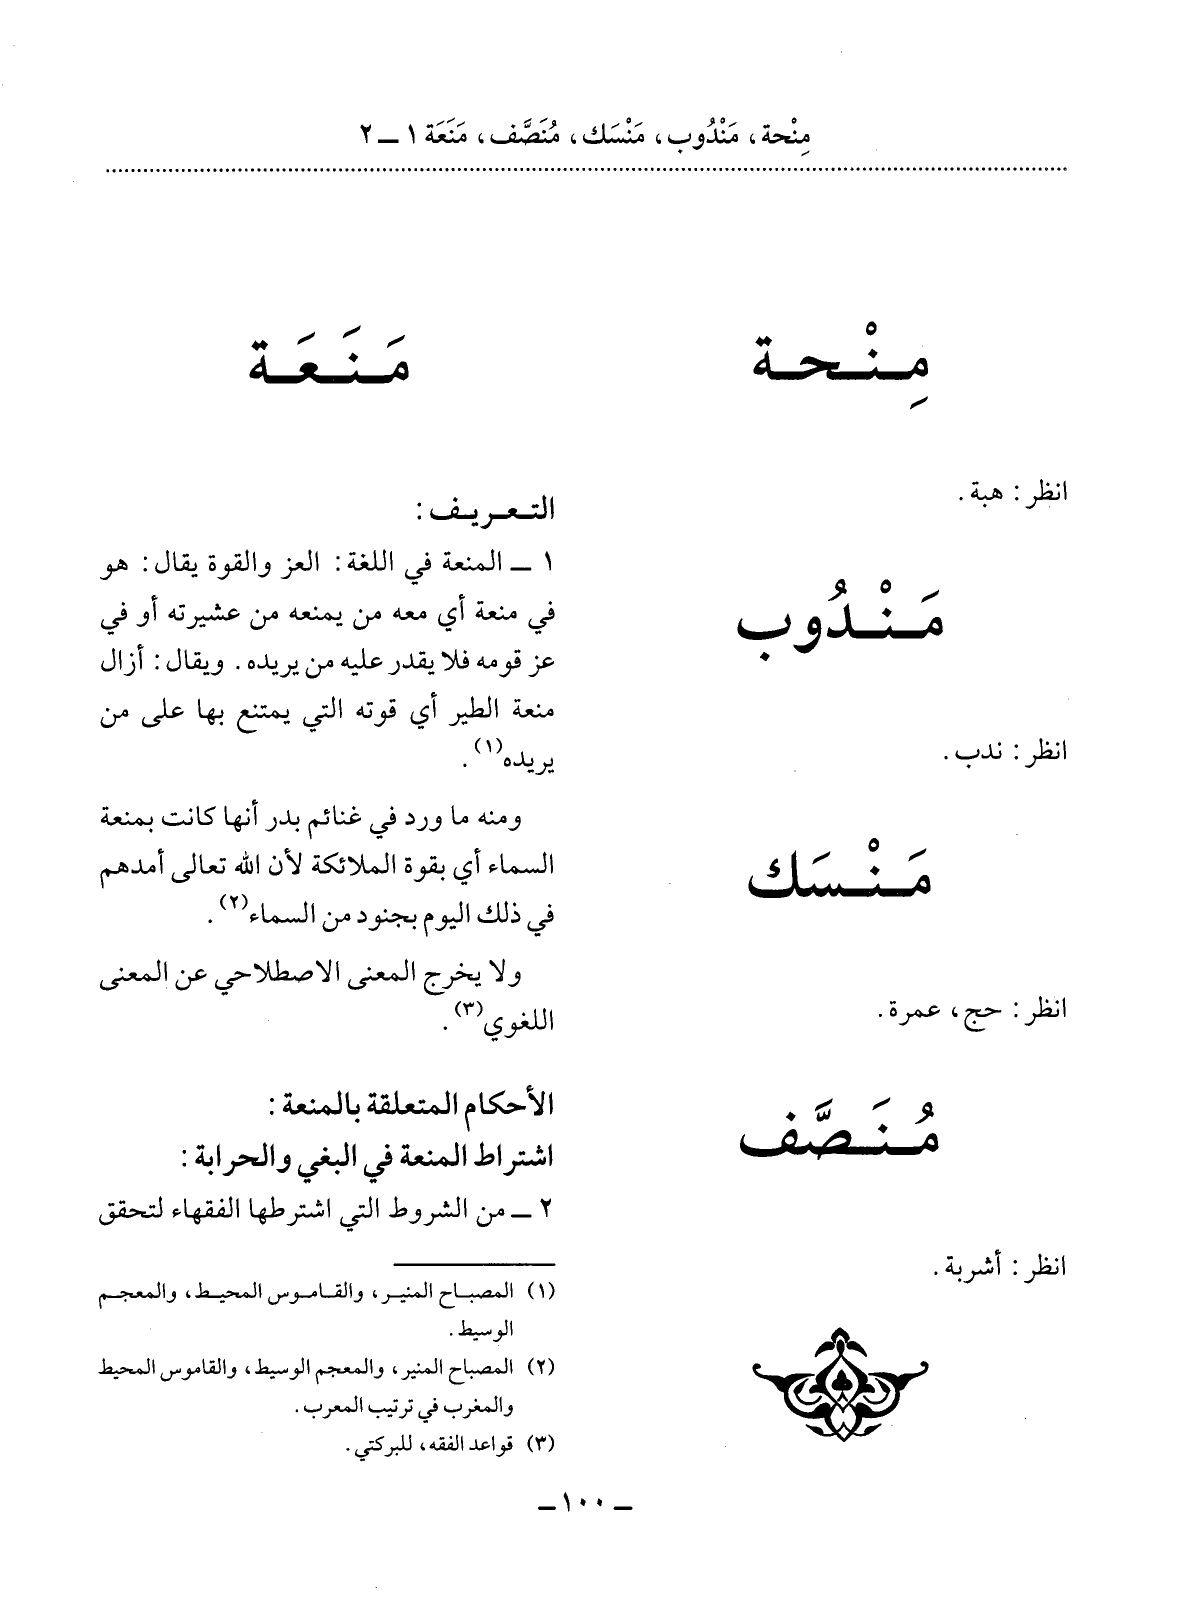 مِنْحة، مَنْدُوب، مَنْسَك، مُنَصَّف، مَنَعَة ١ ــ ٢
مِنْحة
انظر: هبة.
مَنْدُوب
انظر: ندب.
مَنْسَك
انظر: حج، عمرة.
مُنَصَّف
انظر: أشربة.
مَنَعَة
التعريف:
١ ــ المنعة في اللغة: العز والقوة يقال: هو
في منعة أي معه من يمنعه من عشيرته أو في
عز قومه فلا يقدر عليه من يريده. ويقال: أزال
منعة الطير أي قوته التي يمتنع بها على من
يريده(١).
ومنه ما ورد في غنائم بدر أنها كانت بمنعة
السماء أي بقوة الملائكة لأن الله تعالى أمدهم
في ذلك اليوم بجنود من السماء(٢).
ولا يخرج المعنى الاصطلاحي عن المعنى
اللغوي(٣).
الأحكام المتعلقة بالمنعة:
اشتراط المنعة في البغي والحرابة:
٢ ــ من الشروط التي اشترطها الفقهاء لتحقق
(١) المصباح المنير، والقاموس المحيط، والمعجم
الوسيط.
(٢) المصباح المنير، والمعجم الوسيط، والقاموس المحيط
والمغرب في ترتيب المعرب.
(٣) قواعد الفقه، للبركتي.
ــ ١٠٠ ــ